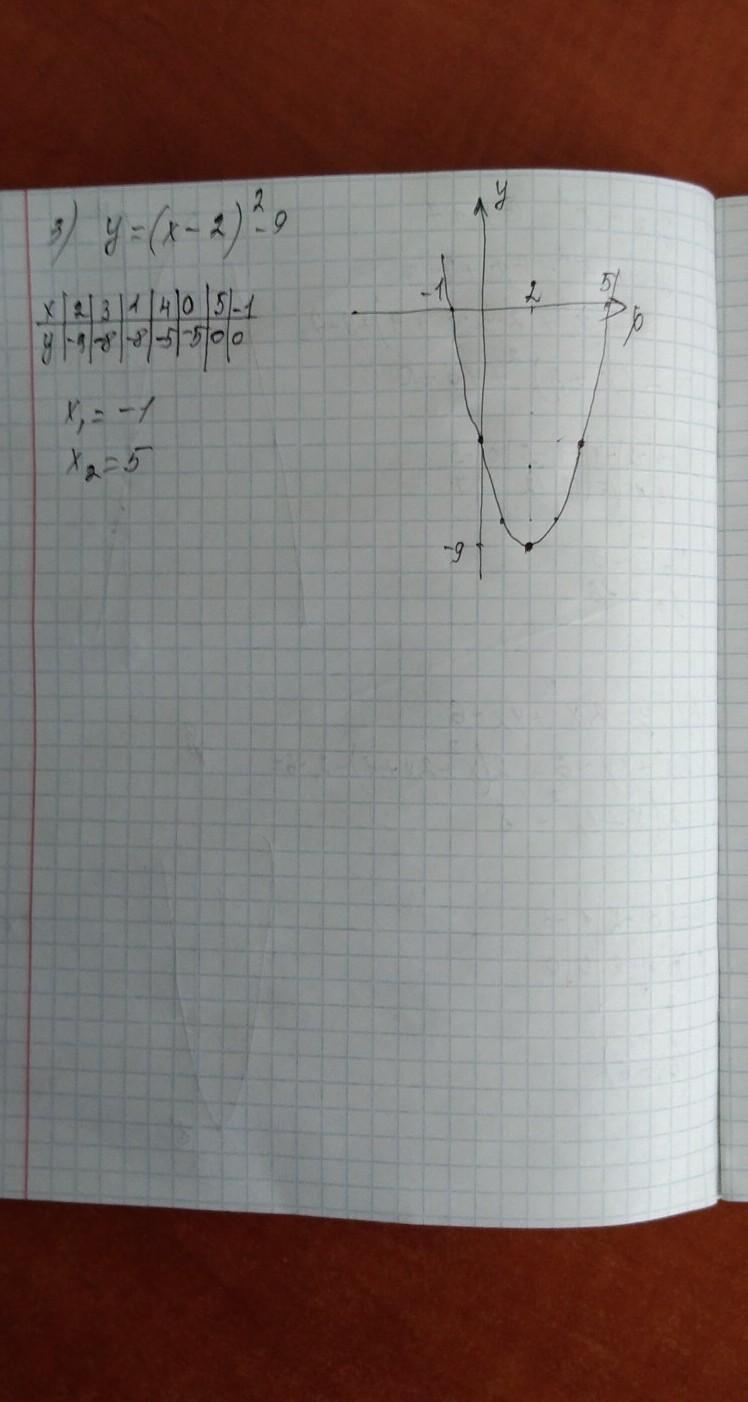 3) y=(x-2)²-9
x|2|3|1|4|0|5|-1
y|-9|-8|-8|-5|-5|0|0
x₁=-1
x₂=5
y
-1 2 5
-9